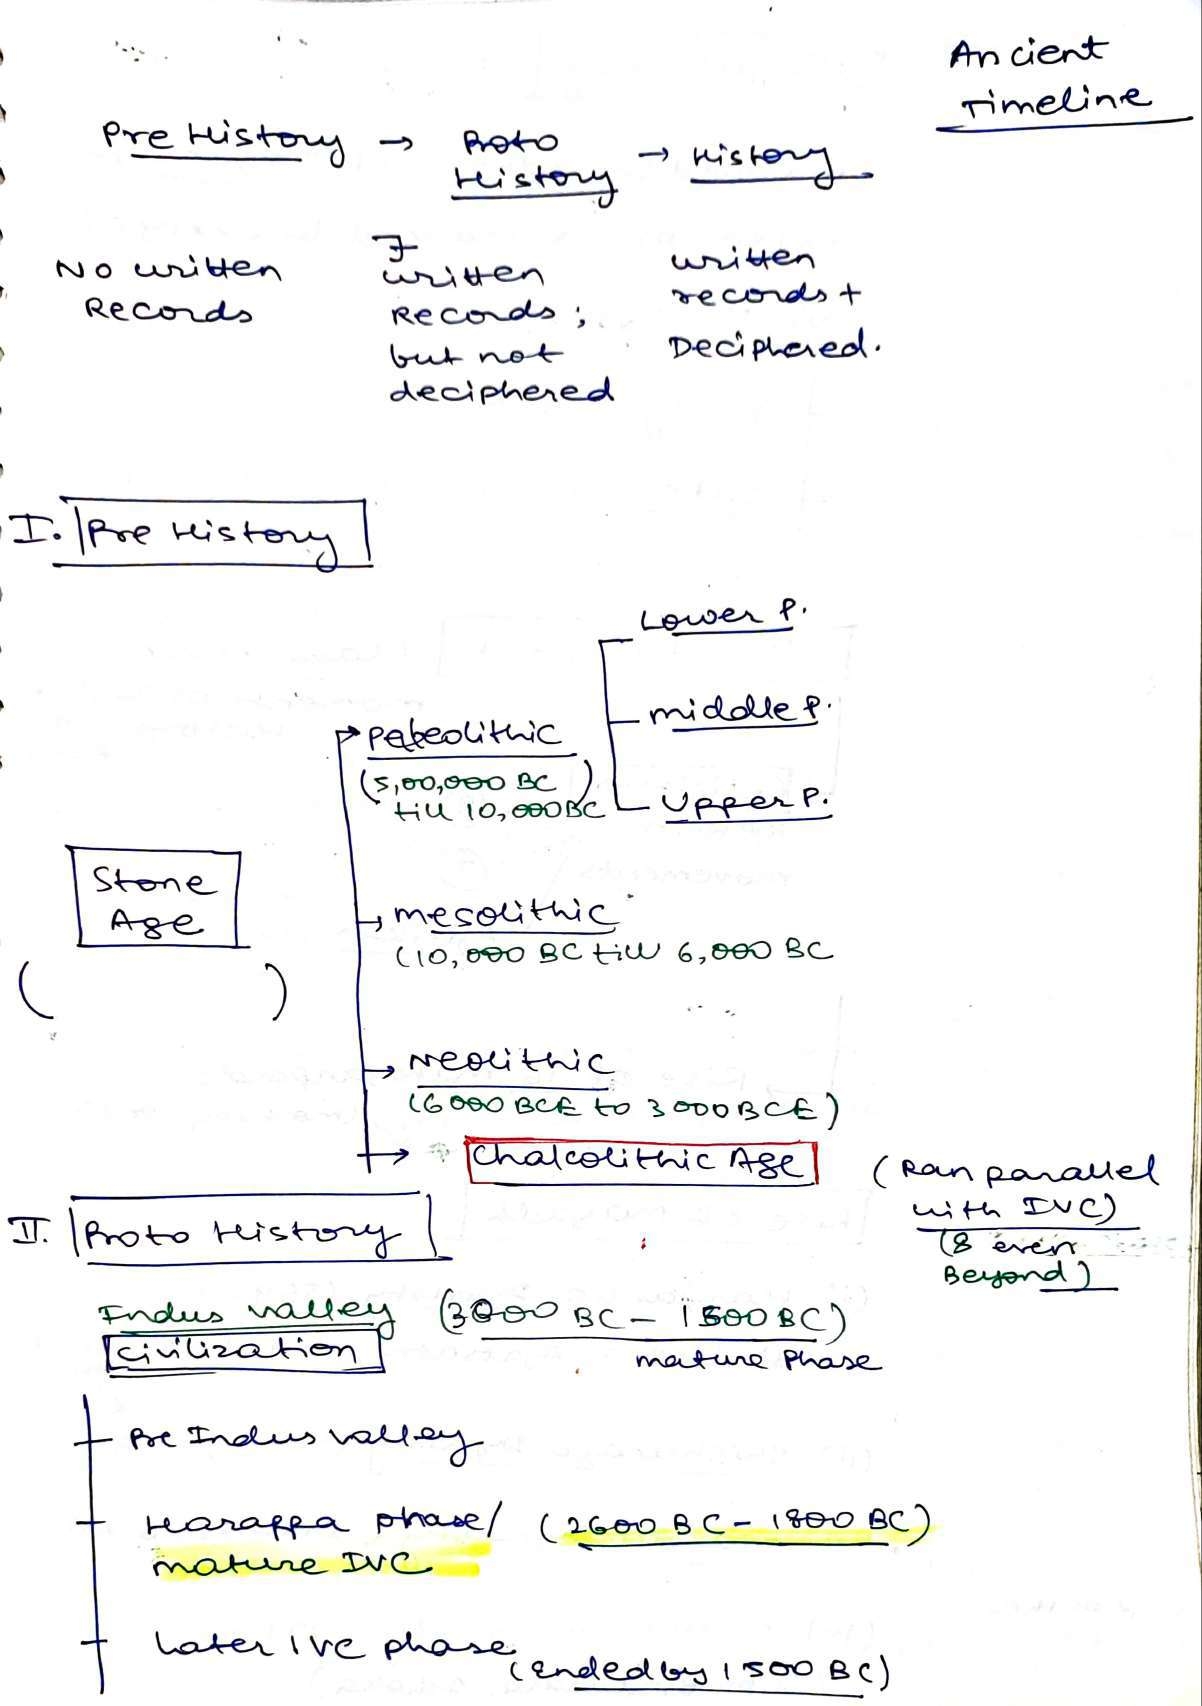 Ancient
Timeline
Pre History → Proto History → History
No written Records
written Records; but not deciphered
written records + Deciphered.
I. Pre History
Lower P.
middle P.
Upper P.
Paleolithic
(5,00,000 BC
till 10,000 BC)
Stone
Age
( )
mesolithic
(10,000 BC till 6,000 BC
Neolithic
(6000 BCE to 3000 BCE)
Chalcolithic Age
(Ran parallel
with IVC)
(& even
Beyond)
II. Proto History
Indus valley (3000 BC - 1500 BC)
civilization
mature Phase
Pre Indus valley
Harappa phase/ (2600 BC - 1800 BC)
mature IVC
Later IVC phase
(Ended by 1500 BC)